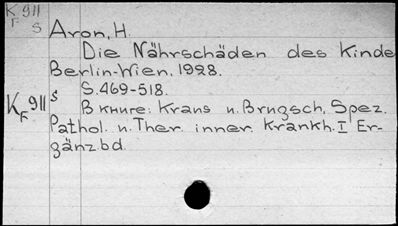 K 911
F S
Aron, H.
Die Nährschäden des Kinde
Berlin-Wien. 1928.
S. 469-518.
K F 911 S
В книге: Kraus u. Brugsch, Spez.
Pathol. u. Ther. inner. Krankh. I Er-
gänzbd.